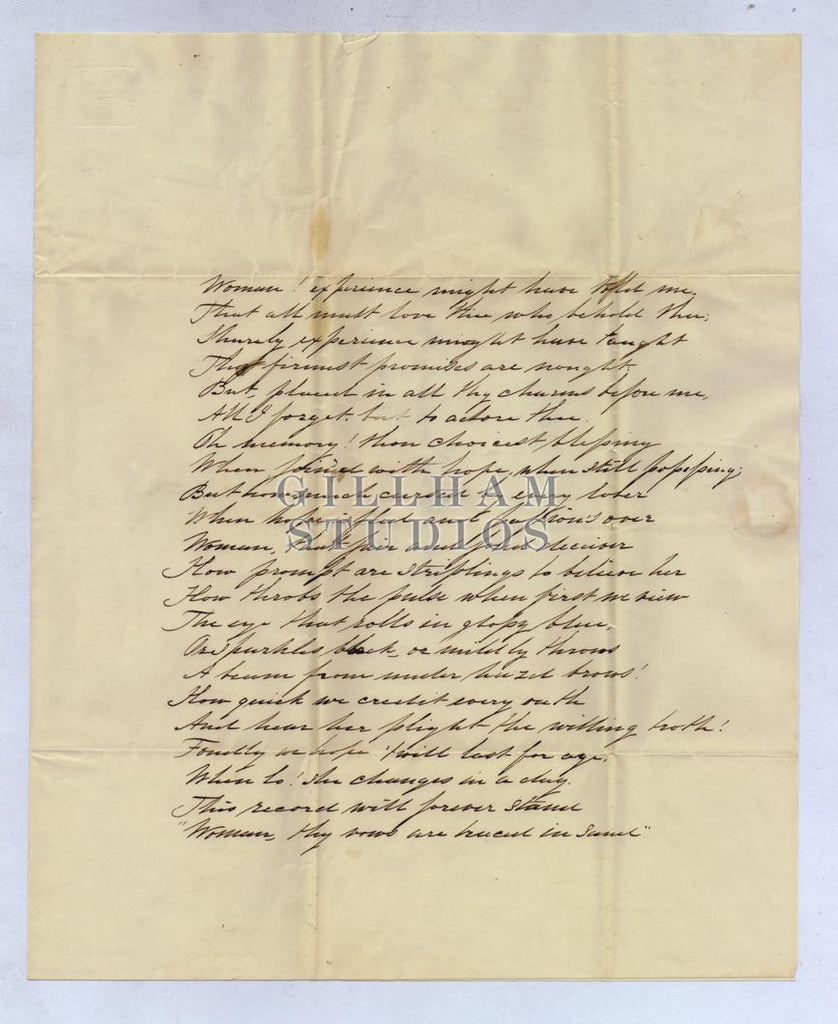 Woman! experience might have told me,
That all must love thee who behold thee;
Shurely experience might have taught
That firmest promises are nought
But, placed in all thy charms before me,
All I forget, but to adore thee.
Oh memory! thou choicest blessing
When joined with hope, when still possessing;
But how much cursed by every lover
When hope is fled and passion's over
Woman, that fair and fond deceiver
How prompt are striplings to believe her
How throbs the pulse when first we view
The eye that rolls in glossy blue,
Or sparkles black, or mildly throws
A beam from under hazel brows!
How quick we credit every oath
And hear her plight the willing troth!
Fondly we hope 'twill last for aye,
When lo! she changes in a day.
This record will forever stand
"Woman, thy vows are traced in sand"
GILLHAM
STUDIOS